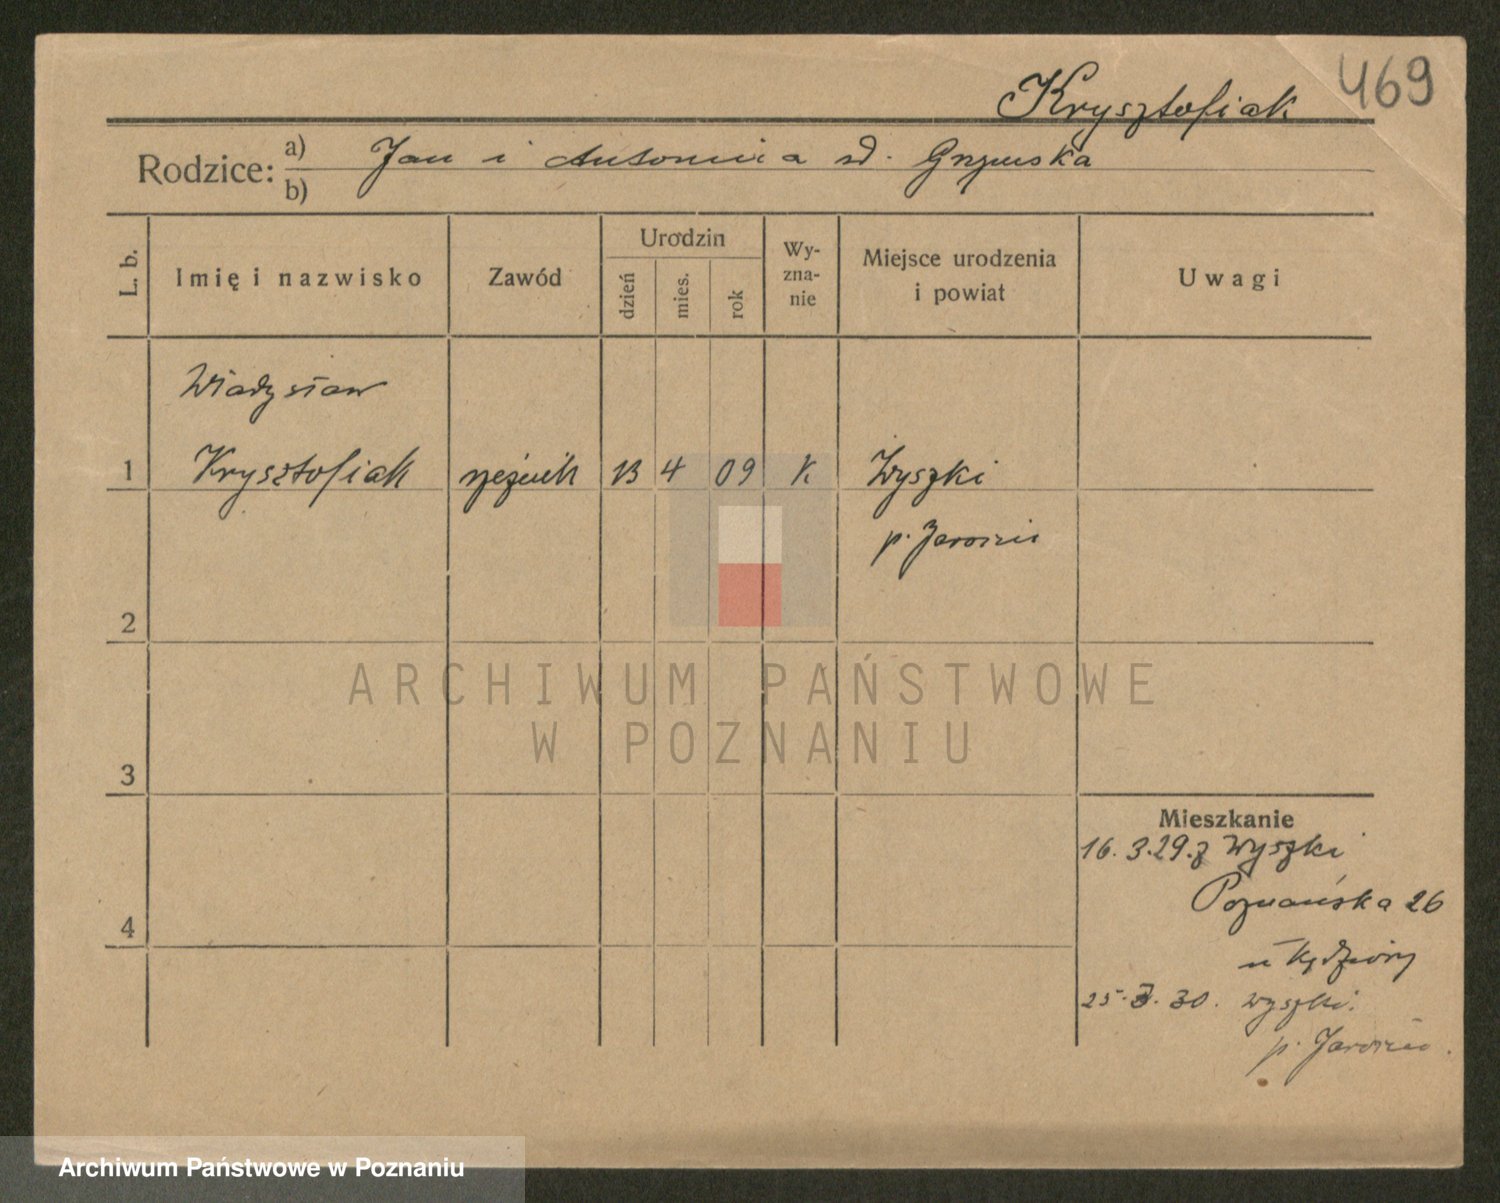 469
Krysztofiak
Rodzice: a) Jan i Antonina
b)
L. b.
Imię i nazwisko
Zawód
Urodzin
dzień
mies.
rok
Wy-
zna-
nie
Miejsce urodzenia
i powiat
Uwagi
Władysław
1 Krysztofiak rzeźnik 13 4 09 K Wyszki
p. Jarocin
2
ARCHIWUM PAŃSTWOWE
W POZNANIU
3
Mieszkanie
16. 3. 29. z Wyszki
Poznańska 26
4
u Kędziory
30. Wyszki.
p. Jarocin.
Archiwum Państwowe w Poznaniu